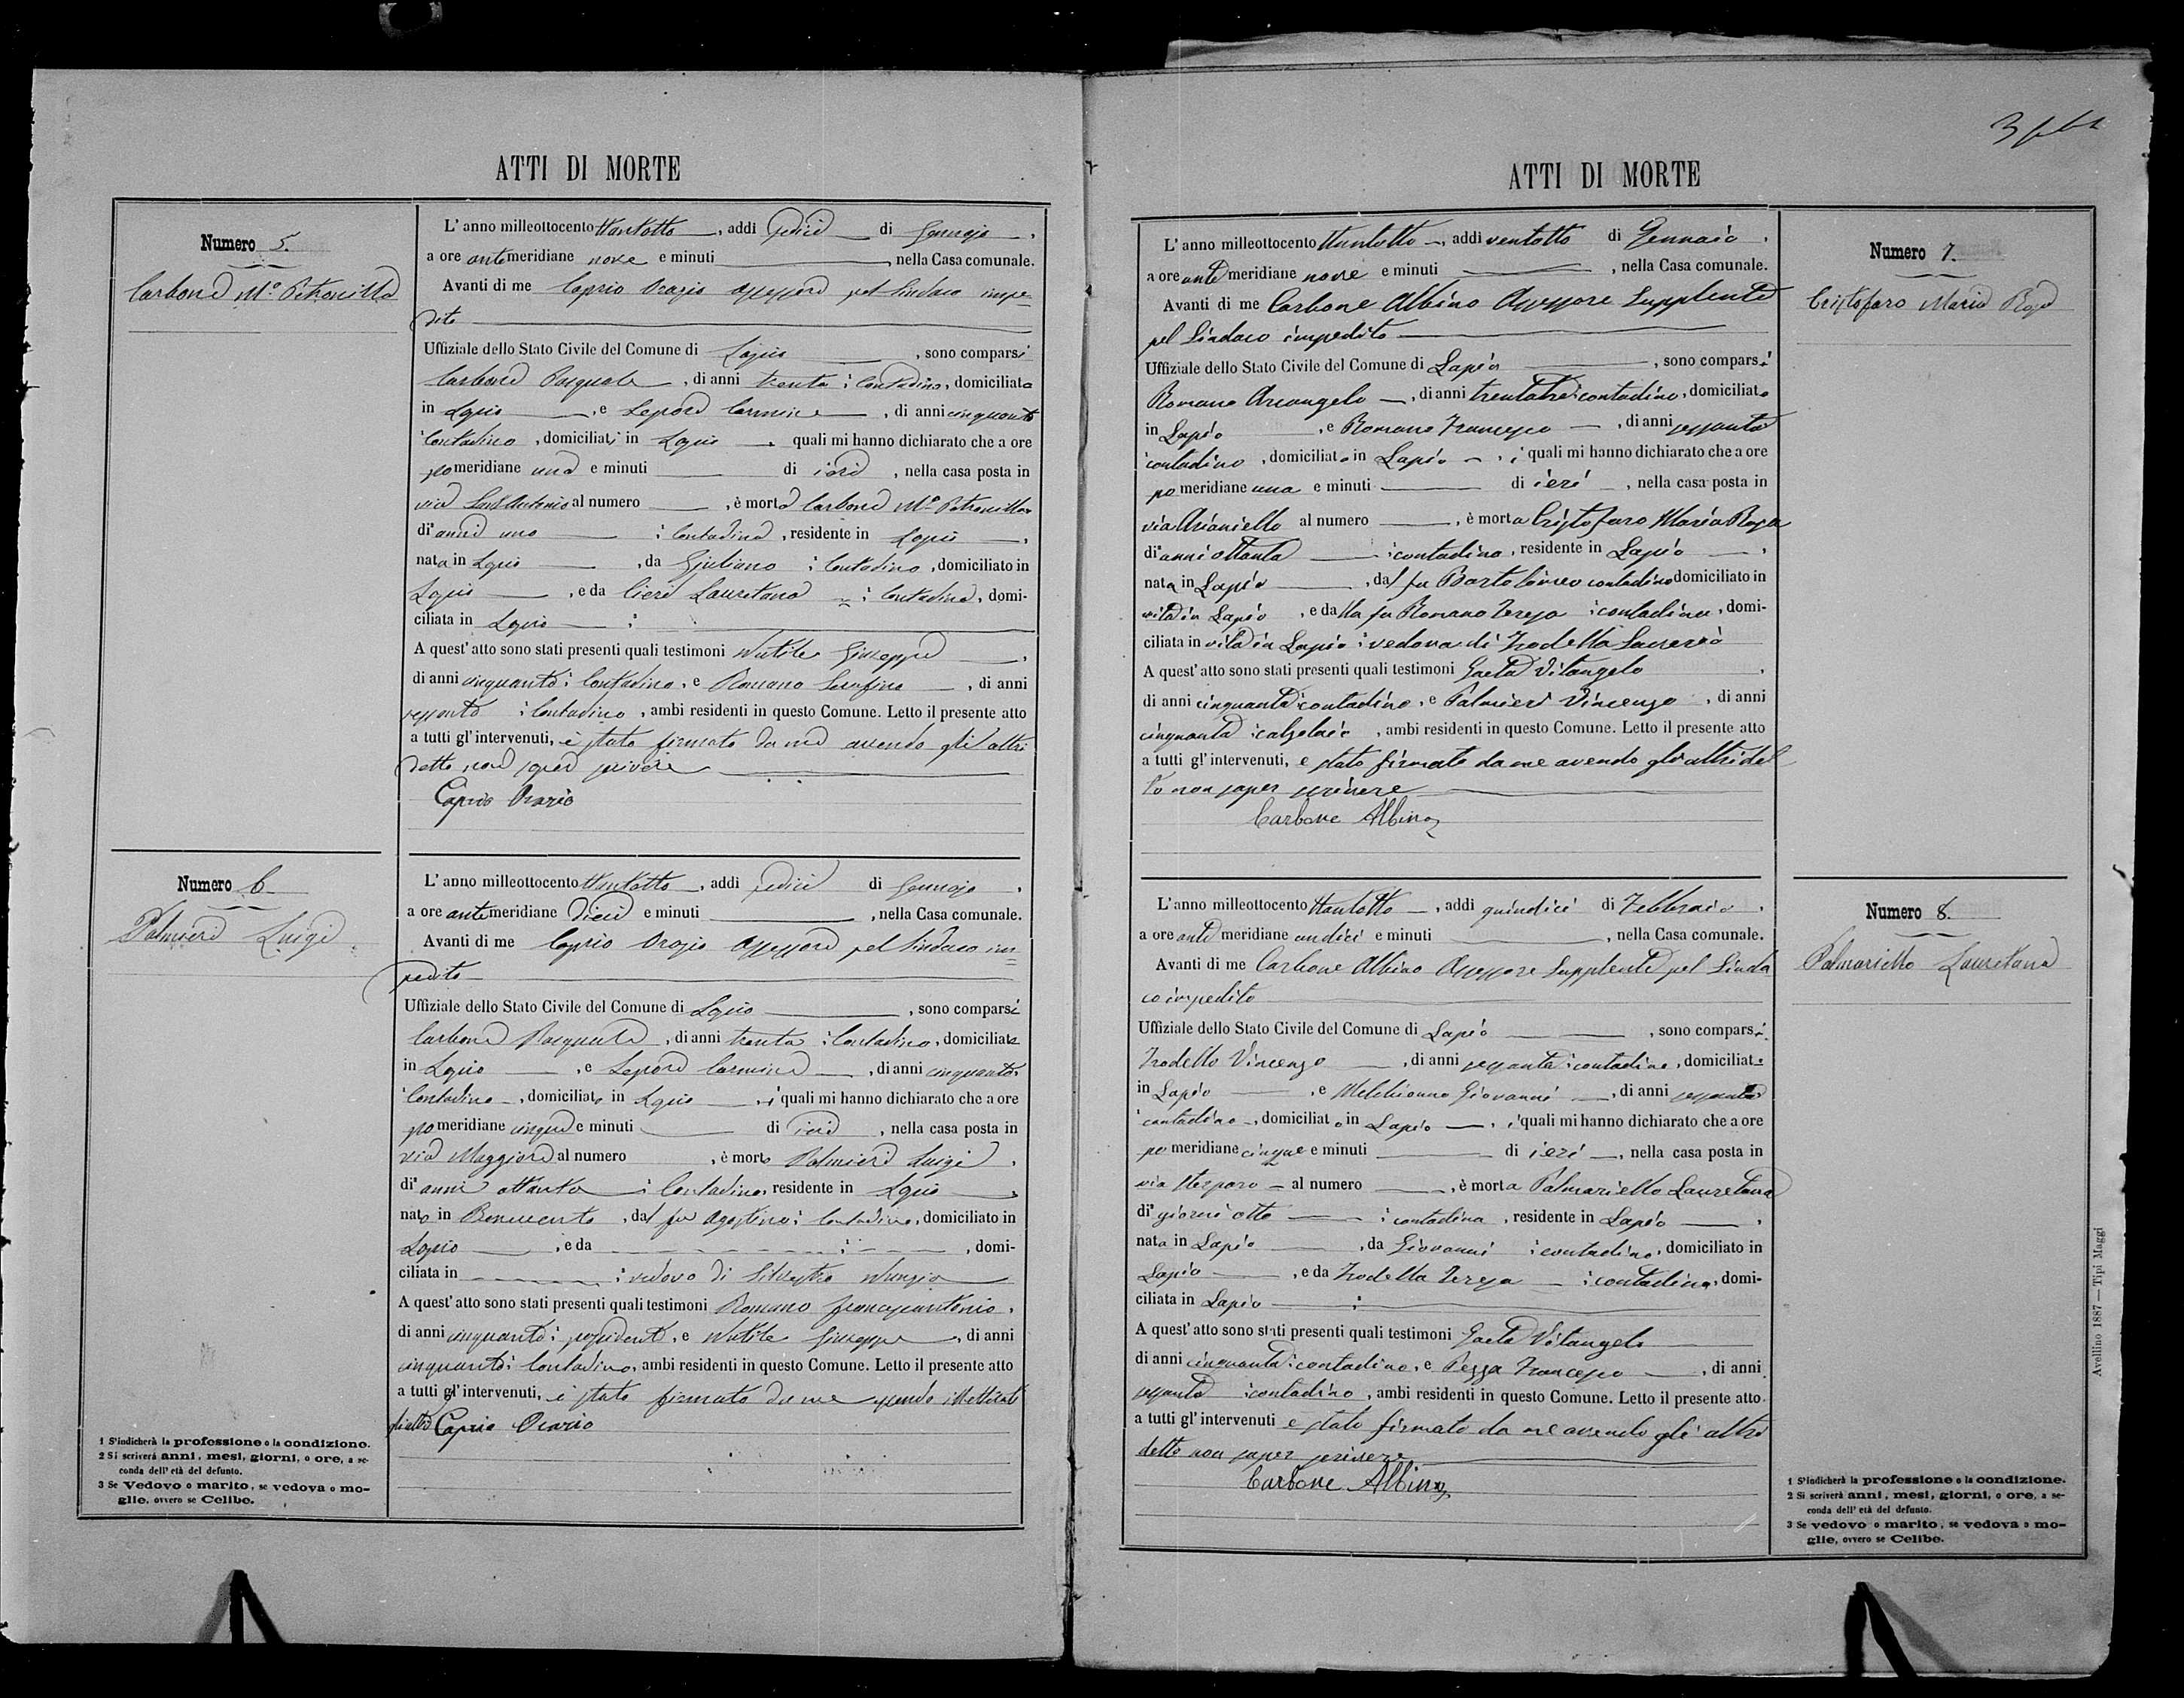 ATTI DI MORTE
Numero 5.
Carbone Mª Petronilla
L'anno milleottocento ttantotto, addi sedici di Gennajo,
a ore antimeridiane nove e minuti, nella Casa comunale.
Avanti di me Caprio Orazio Assessore pel Sindaco impe=
dito
Uffiziale dello Stato Civile del Comune di Lapio, sono comparsi
Carbone Pasquale, di anni trenta contadino, domiciliato
in Lapio, e Lepore Carmine, di anni cinquanta
contadino, domiciliati in Lapio, quali mi hanno dichiarato che a ore
pomeridiane una e minuti di ieri, nella casa posta in
via Sant'Antonio al numero, è morta Carbone Mª Petronilla
di anni uno contadina, residente in Lapio,
nata in Lapio, da Giuliano contadino, domiciliato in
Lapio, e da Lauretana contadina, domi-
ciliata in Lapio
A quest'atto sono stati presenti quali testimoni Nutile Giuseppe,
di anni cinquanta contadino, e Romano Serafino, di anni
sessanta contadino, ambi residenti in questo Comune. Letto il presente atto
a tutti gl'intervenuti, è stato firmato da me avendo gli altri
detto non saper scrivere
Caprio Orazio
Numero 6
Palmieri Luigi
L'anno milleottocento ttantotto, addi sedici di Gennajo,
a ore antimeridiane dieci e minuti, nella Casa comunale.
Avanti di me Caprio Orazio Assessore pel Sindaco im=
pedito
Uffiziale dello Stato Civile del Comune di Lapio, sono comparsi
Carbone Pasquale, di anni trenta contadino, domiciliato
in Lapio, e Lepore Carmine, di anni cinquanta,
contadino, domiciliato in Lapio, i quali mi hanno dichiarato che a ore
pomeridiane cinque e minuti di ieri, nella casa posta in
via Maggiore al numero, è morto Palmieri Luigi,
di anni ottanta contadino, residente in Lapio,
nato in Benevento, dal fu Agostino contadino, domiciliato in
Lapio, e da, domi-
ciliata in vedovo di Silvestro Nunzia
A quest'atto sono stati presenti quali testimoni Romano Francescantonio,
di anni cinquanta possidente, e Nutile Giuseppe, di anni
cinquanta contadino, ambi residenti in questo Comune. Letto il presente atto
a tutti gl'intervenuti, è stato firmato da me essendo illetterati
gli altri Caprio Orazio
1 S'indicherà la professione o la condizione.
2 Si scriverà anni, mesi, giorni, o ore, a se-
conda dell'età del defunto.
3 Se Vedovo o marito, se vedova o mo-
glie, ovvero se Celibe.
ATTI DI MORTE
Numero 7.
Cristofaro Maria Rosa
L'anno milleottocento ttantotto, addi ventotto di Gennaio,
a ore antimeridiane nove e minuti, nella Casa comunale.
Avanti di me Carbone Albino Assessore Supplente
pel Sindaco impedito
Uffiziale dello Stato Civile del Comune di Lapio, sono comparsi
Romano Arcangelo, di anni trentatre contadino, domiciliato
in Lapio, e Romano Francesco, di anni sessanta
contadino, domiciliato in Lapio, i quali mi hanno dichiarato che a ore
pomeridiane una e minuti di ieri, nella casa posta in
via Arianiello al numero, è morta Cristofaro Maria Rosa
di anni ottanta contadina, residente in Lapio,
nata in Lapio, dal fu Bartolomeo contadino domiciliato in
vita in Lapio, e dalla fu Romano Teresa contadina, domi-
ciliata in vita in Lapio vedova di Trodella
A quest'atto sono stati presenti quali testimoni Gaeta Vitangelo,
di anni cinquanta contadino, e Palmieri Vincenzo, di anni
cinquanta calzolaio, ambi residenti in questo Comune. Letto il presente atto
a tutti gl'intervenuti, e stato firmato da me avendo gli altri det
to non saper scrivere
Carbone Albino
Numero 8.
Palmariello Lauretana
L'anno milleottocento ttantotto, addi quindici di Febbraio,
a ore antimeridiane undici e minuti, nella Casa comunale.
Avanti di me Carbone Albino Assessore Supplente pel Sinda
co impedito
Uffiziale dello Stato Civile del Comune di Lapio, sono comparsi
Trodella Vincenzo, di anni sessanta contadino, domiciliato
in Lapio, e Melchionno Giovanni, di anni sessanta
contadino, domiciliato in Lapio, i quali mi hanno dichiarato che a ore
pomeridiane cinque e minuti di ieri, nella casa posta in
via Sterparo al numero, è morta Palmariello Lauretana
di giorni otto contadina, residente in Lapio,
nata in Lapio, da Giovanni contadino, domiciliato in
Lapio, e da Trodella Teresa contadina, domi-
ciliata in Lapio
A quest'atto sono stati presenti quali testimoni Gaeta Vitangelo
di anni cinquanta contadino, e Pezza Francesco, di anni
sessanta contadino, ambi residenti in questo Comune. Letto il presente atto
a tutti gl'intervenuti e stato firmato da me avendo gli altri
detto non saper scrivere
Carbone Albino
1 S'indicherà la professione o la condizione.
2 Si scriverà anni, mesi, giorni, o ore, a se-
conda dell'età del defunto.
3 Se vedovo o marito, se vedova o mo-
glie, ovvero se Celibe.
Avellino 1887 — Tipi Maggi